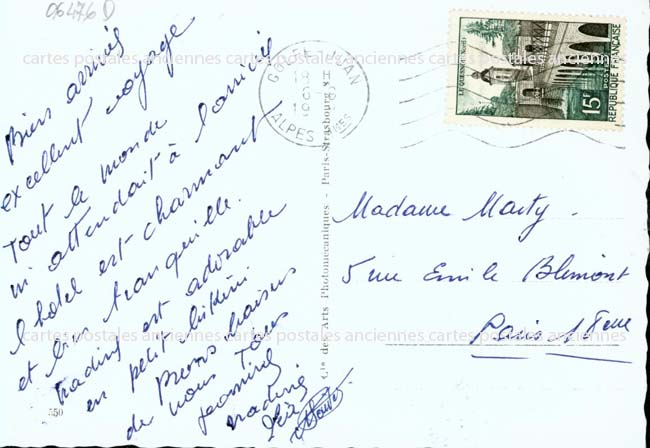 06476 D
Biens arrivés
excellent voyage
Tout le monde
m attendait à l'arrivée
l hotel est charmant
et bien tranquille.
nadine est adorable
en petit bikini
Bons baisers
de nous Tous
Jeannine
nadine
550
Cie des Arts Photomécaniques - Paris-Strasbourg
GOLFE JUAN
18 H
ALPES
LE QUESNOY
15F
POSTES
REPUBLIQUE FRANÇAISE
Madame Marty.
5 rue Emile Blémont
Paris 18eme
cartes postales anciennes cartes postales anciennes cartes postales anciennes
cartes postales anciennes cartes postales anciennes cartes postales anciennes